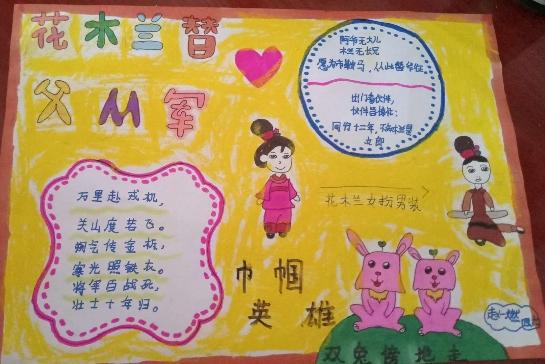 花木兰替
父从军
阿爷无大儿
木兰无长兄
愿为市鞍马，从此替爷征
出门看伙伴，
伙伴皆惊忙：
同行十二年，不知木兰是
女郎
万里赴戎机，
关山度若飞。
朔气传金柝，
寒光照铁衣。
将军百战死，
壮士十年归。
花木兰女扮男装
巾帼
英雄
双兔傍地走